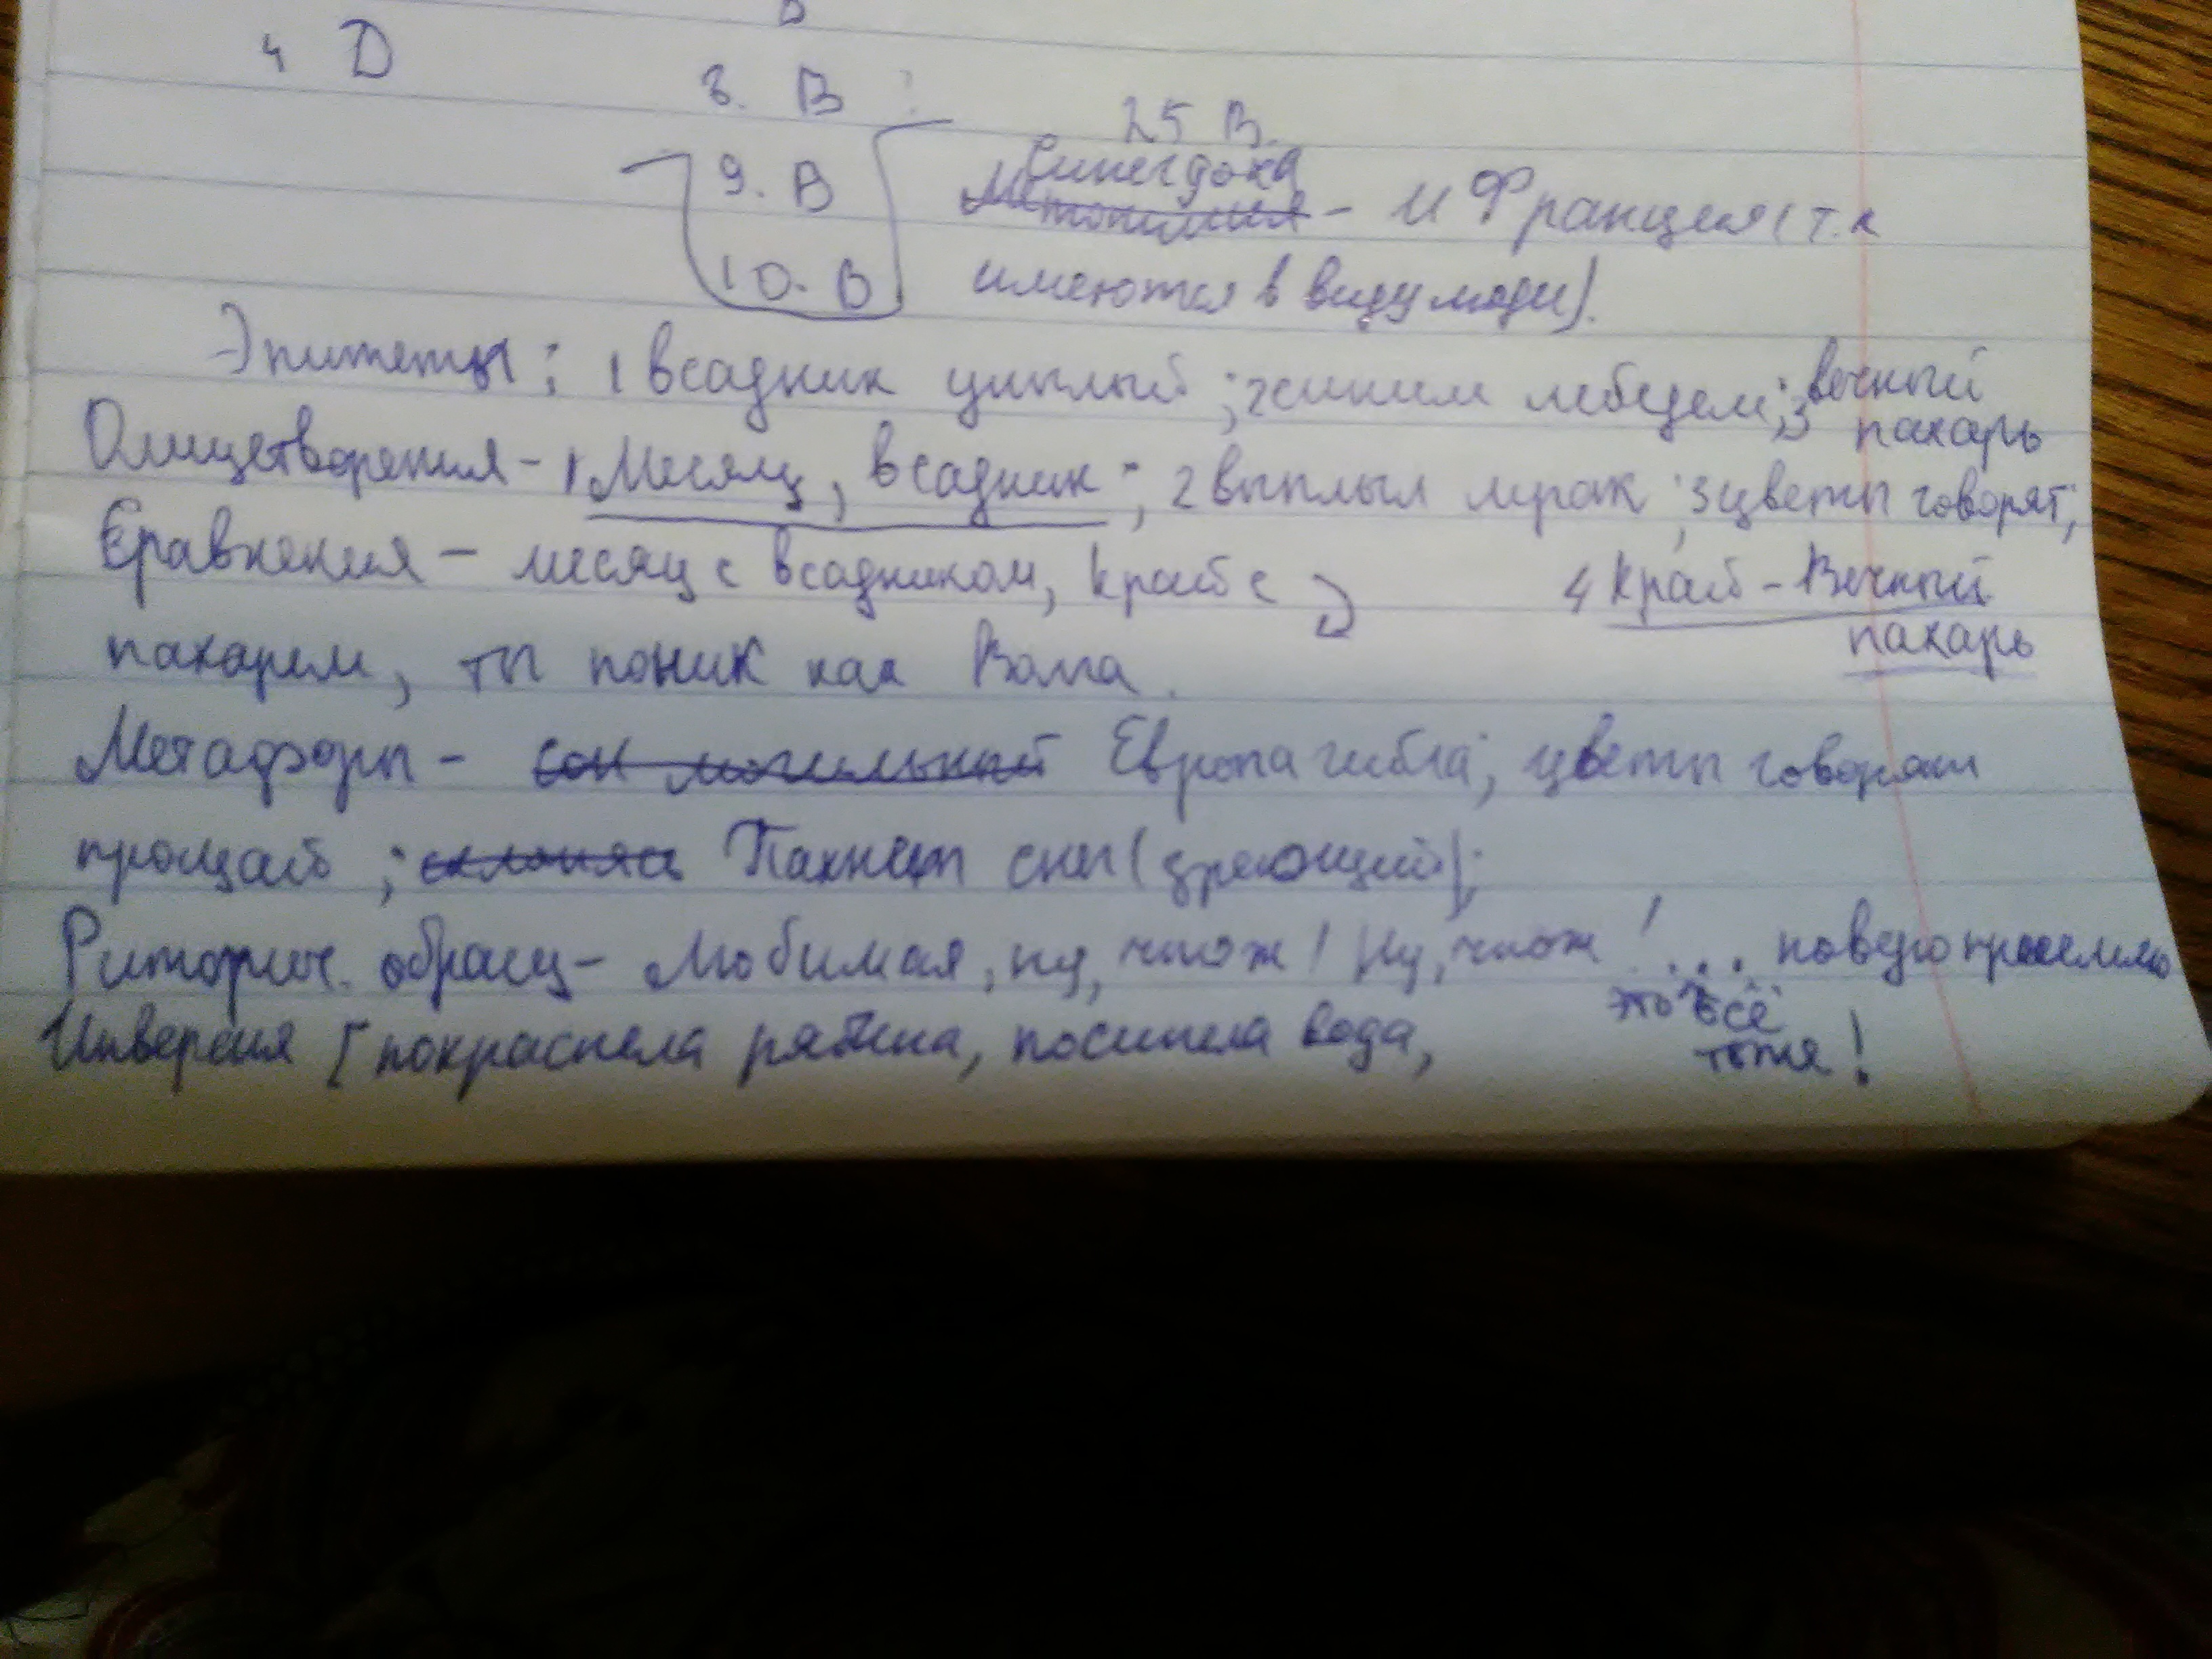 4 D
8. В
25 В.
9. В
Синегдоха
Метонимия - и Франция (т.к
10. В
имеются в виду люди).
Эпитеты: 1 всадник унылый; 2 синим лебедем; 3 вечный
пахарь
Олицетворения - 1 Месяц, всадник; 2 выплыл мрак; 3 цветы говорят;
Сравнения - месяц с всадником, краб с
4 Краб - Вечный
пахарь
пахарем, ты поник как Волга.
Метафоры - сон могильный Европа гибла; цветы говорят
прощай; склоняясь Пахнет снег (зреющий);
Риторич. обращ - Любимая, ну, что ж! Ну, что ж! ...
это всё
тоже!
Инверсия [покраснела рябина, посинела вода,